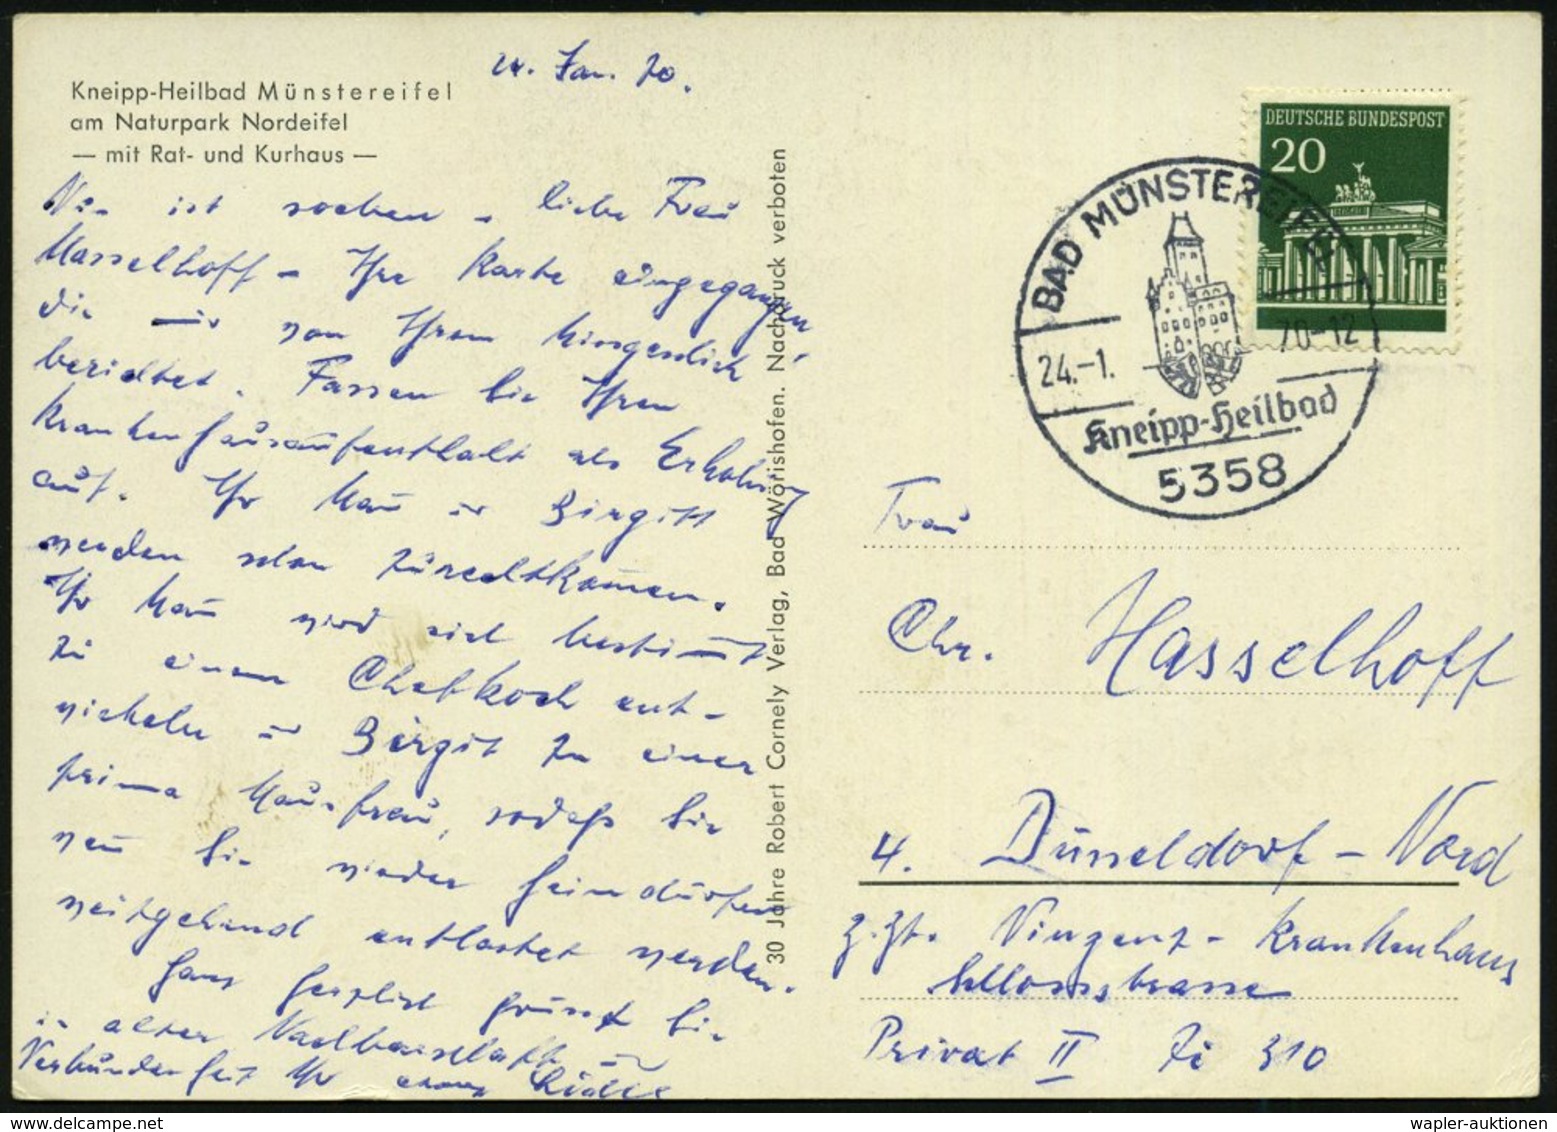 24. Jan. 70.
Kneipp-Heilbad Münstereifel
am Naturpark Nordeifel
— mit Rat- und Kurhaus —
ist soeben - liebe Frau
Hasselhoff - Ihre Karte eingegangen,
die mir von Ihrem
berichtet. Fassen Sie Ihren
Krankenhausaufenthalt als Erholung
auf. Ihr Mann u Birgitt
werden schon zurechtkommen.
Ihr Mann wird sich bestimmt
zu einem Chefkoch ent-
wickeln u Birgit zu einer
prima Hausfrau, sodass Sie
wenn Sie wieder heim dürfen
weitgehend entlastet werden.
Ganz herzlich grüsst Sie
in alter Nachbarschaft u
Verbundenheit Ihr
30 Jahre Robert Cornely Verlag, Bad Wörishofen. Nachdruck verboten
DEUTSCHE BUNDESPOST
20
BAD MÜNSTEREIFEL
24.-1. 70-12
Kneipp-Heilbad
5358
Frau
Chr. Hasselhoff
4. Düsseldorf - Nord
z.Zt. Vinzenz - Krankenhaus
Schlossstrasse
Privat II Zi 310
wapler-auktionen